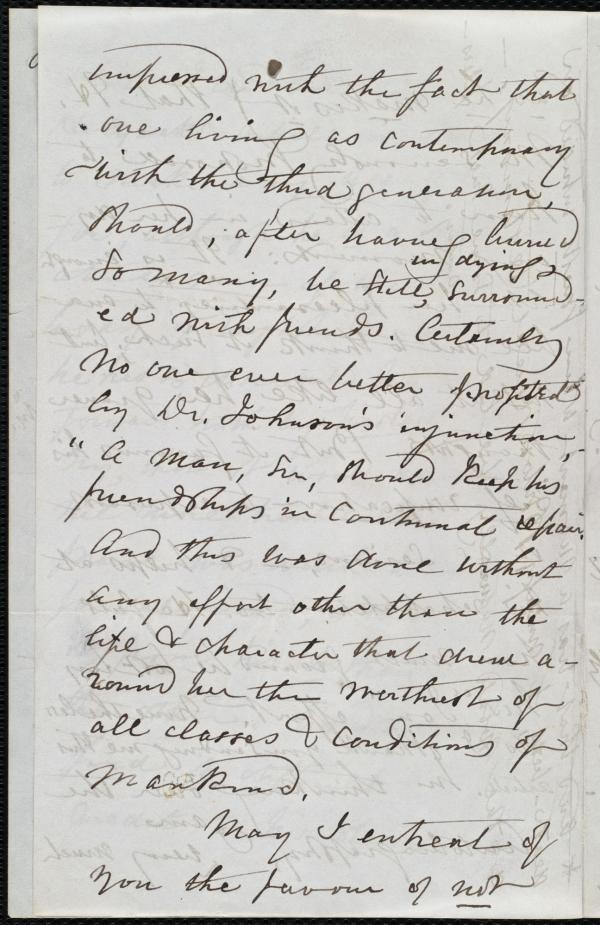 impressed with the fact that
one living as contemporary
with the third generation,
should, after having buried
so many, be still, in dying, surround-
ed with friends. Certainly
no one ever better profited
by Dr. Johnson's injunction,
"A man, Sir, should keep his
friendships in continual repair.
And this was done without
any effort other than the
life & character that drew a-
round her the worthiest of
all classes & conditions of
mankind.
May I entreat of
you the favour of not